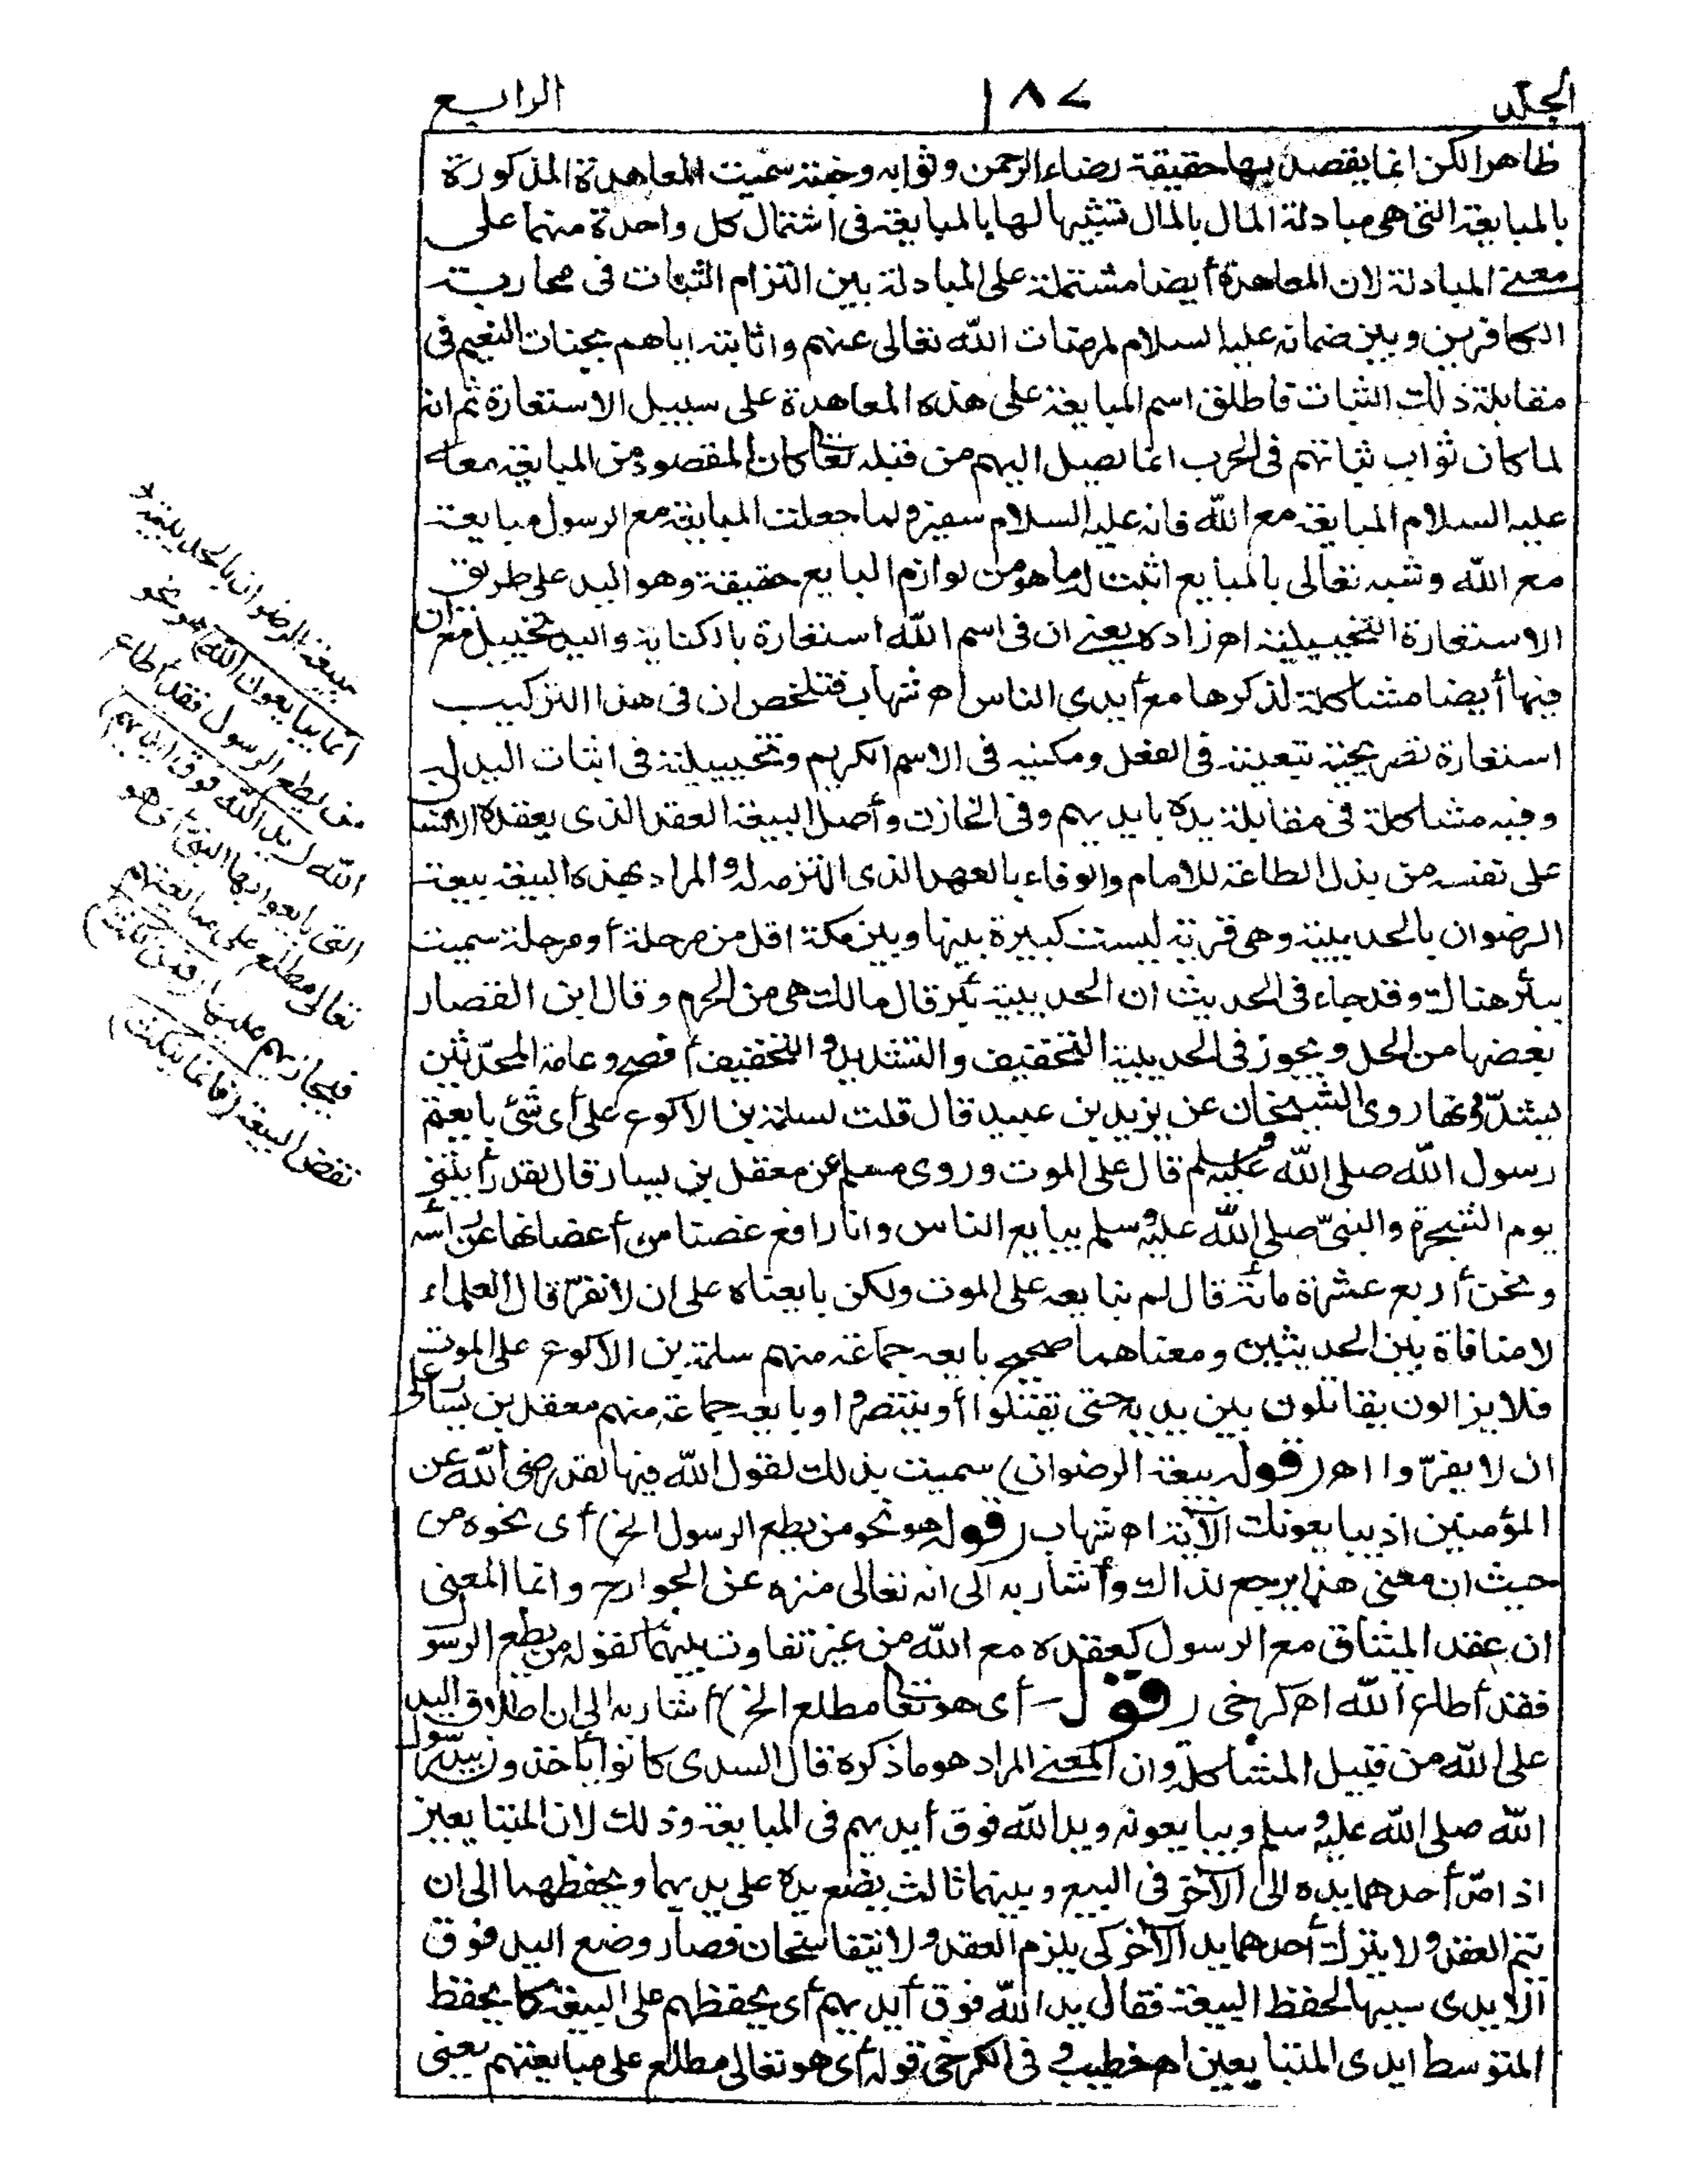 الجلد
١٨٧
الرابع
ظاهرا لكن انما يقصد بها حقيقة رضاء الرحمن وثوابه وجنته سميت المعاهدة المذكورة
بالمبايعة التى هى مبادلة المال بالمال تشبيها لها بالمبايعة فى اشتمال كل واحدة منهما على
معنى المبادلة لان المعاهدة أيضا مشتملة على المبادلة بين التزام الثبات فى محاربة
الكافرين وبين ضمانه عليه السلام لمرضات الله تعالى عنهم واثابته اياهم بجنات النعيم فى
مقابلة ذلك الثبات فاطلق اسم المبايعة على هذه المعاهدة على سبيل الاستعارة ثم انه
لما كان ثواب ثباتهم فى الحرب انما يصل اليهم من قبله تعالى كان المقصود من المبايعة معه
عليه السلام المبايعة مع الله فانه عليه السلام سفير ولما جعلت المبايعة مع الرسول مبايعة
مع الله وشبه تعالى بالمبايع اثبت له ما هو من لوازم البايع حقيقة وهو اليد على طريق
الاستعارة التخييلية اهـ زاده يعنى ان فى اسم الله استعارة بالكناية واليد تخييل مع ان
فيها أيضا مشاكلة لذكرها مع أيدى الناس اهـ شهاب فتلخص ان فى هذا التركيب
استعارة تصريحية تبعية فى الفعل ومكنية فى الاسم الكريم وتخييلية فى اثبات اليد له
وفيه مشاكلة فى مقابلة يده بايديهم وفى الخازن وأصل البيعة العقد الذى يعقده الانسان
على نفسه من بذل الطاعة للامام والوفاء بالعهد الذى التزمه له والمراد بهذه البيعة بيعة
الرضوان بالحديبية وهى قرية ليست كبيرة بينها وبين مكة اقل من مرحلة أو مرحلة سميت
ببئر هناك وقد جاء فى الحديث ان الحديبية بئر قال مالك هى من الحرم وقال ابن القصار
بعضها من الحل ويجوز فى الحديبية التخفيف والتشديد والتخفيف أفصح وعامة المحدثين
يشددونها روى الشيخان عن يزيد بن عبيد قال قلت لسلمة بن الاكوع على أى شئ بايعتم
رسول الله صلى الله عليه وسلم قال على الموت وروى مسلم عن معقل بن يسار قال لقد رأيتنى
يوم الشجرة والنبىّ صلى الله عليه وسلم يبايع الناس وانا رافع غصنا من أغصانها عن رأسه
ونحن أربع عشرة مائة قال لم نبايعه على الموت ولكن بايعناه على ان لا نفرّ قال العلماء
لا منافاة بين الحديثين ومعناهما صحيح بايعه جماعة منهم سلمة بن الاكوع على الموت
فلا يزالون يقاتلون بين يديه حتى تقتلوا أو ينتصروا وبايعه جماعة منهم معقل بن يسار على
ان لا يفرّوا اهـ (قوله بيعة الرضوان) سميت بذلك لقول الله فيها لقد رضى الله عن
المؤمنين اذ يبايعونك الآية اهـ شهاب (قوله هو نحو من يطع الرسول الخ) أى نحوه من
حيث ان معنى هذا يرجع لذاك وأشار به الى انه تعالى منزه عن الجوارح وانما المعنى
ان عقد الميثاق مع الرسول كعقده مع الله من غير تفاوت بينهما كقوله من يطع الرسول
فقد أطاع الله اهـ كرخى (قوله أى هو تعالى مطلع الخ) أشار به الى ان اطلاق اليد
على الله من قبيل المشاكلة وان المعنى المراد هو ما ذكره قال السدى كانوا يأخذون بيد رسول
الله صلى الله عليه وسلم ويبايعونه ويد الله فوق أيديهم فى المبايعة وذلك لان المتبايعين
اذا مدّ أحدهما يده الى الآخر فى البيع وبينهما ثالث يضع يده على يديهما ويحفظهما الى ان
تتم العقد ولا يترك أحدهما يد الآخر كى يلزم العقد ولا يتفاسخان فصار وضع اليد فوق
الايدى سببا لحفظ البيعة فقال يد الله فوق أيديهم أى يحفظهم على البيعة كما يحفظ
المتوسط ايدى المتبايعين اهـ خطيب وفى الكرخى قوله أى هو تعالى مطلع على مبايعتهم يعنى
بيعة الرضوان بالحديبية (
انما يبايعون الله) هو نحو
من يطع الرسول فقد أطاع
الله (يد الله فوق ايديهم)
التى بايعوا بها النبىّ أى هو
تعالى مطلع على مبايعتهم
فيجازيهم عليها (فمن نكث)
نقض البيعة (فانما ينكث)